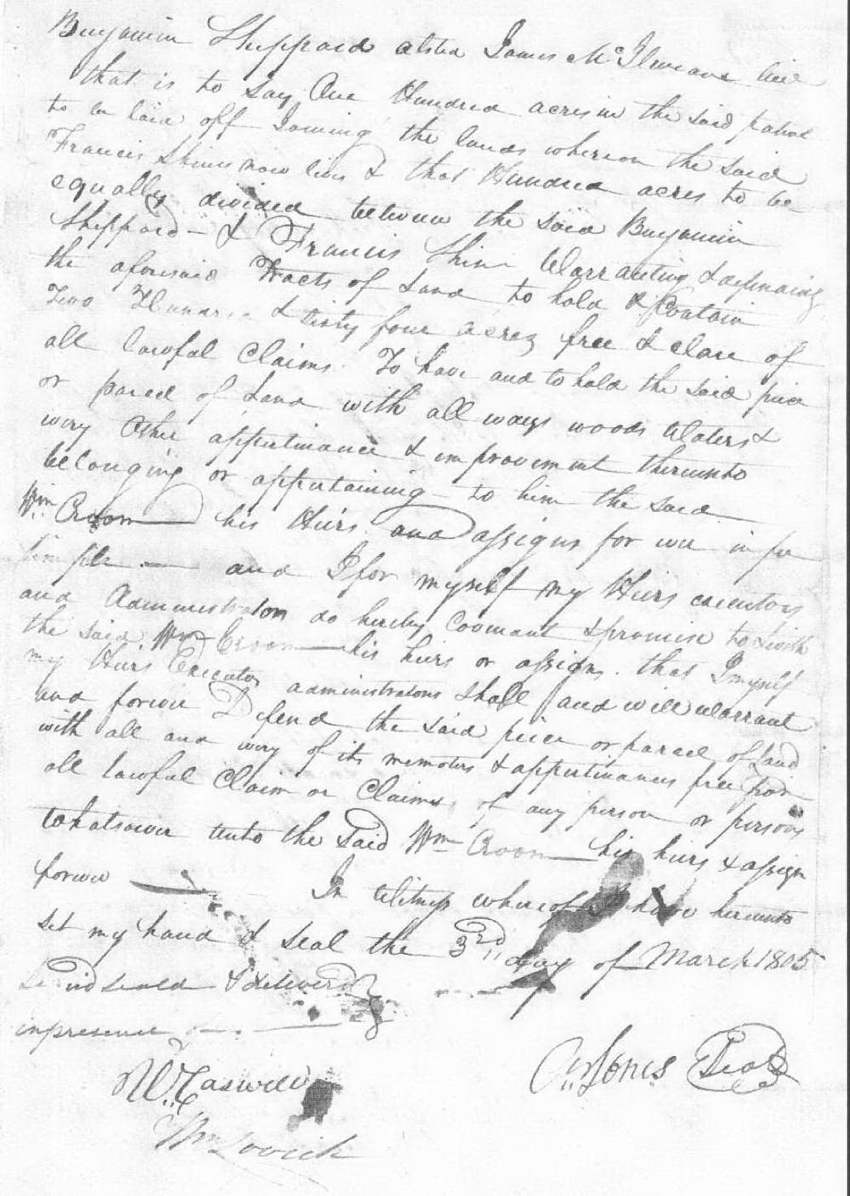 Benjamin Sheppard James McIlweans line
that is to say One Hundred acres in the said patent
to be laid off Joining the lands whereon the said
Francis Shine now lives & that Hundred acres to be
equally divided between the said Benjamin
Sheppard & Francis Shine Warranting & defending
the aforesaid Tracts of Land to hold & Contain
Two & sixty four acres free & clare of
all lawful Claims. To have and to hold the said piece
or parcel of Land with all ways woods Waters &
every other appurtinance & improvement thereunto
belonging or appertaining to him the said
Wm Croom his Heirs and assigns for ever in fee
simple and I for myself my Heirs executors
and Administrators do hereby covenant & promise to & with
the said Wm Croom his heirs or assigns that I myself
my Heirs Executors administrators shall and will warrant
and forever Defend the said piece or parcel of Land
with all and every of its & appurtinances free from
all lawful Claim or Claims of any person or persons
whatsoever unto the Said Wm Croom his heirs & assigns
forever In Witness whereof I have hereunto
set my hand & seal the 3rd day of March 1805
sealed & deliverd
in presence of
Jones Seal
W. Caswell
Wm Lovick